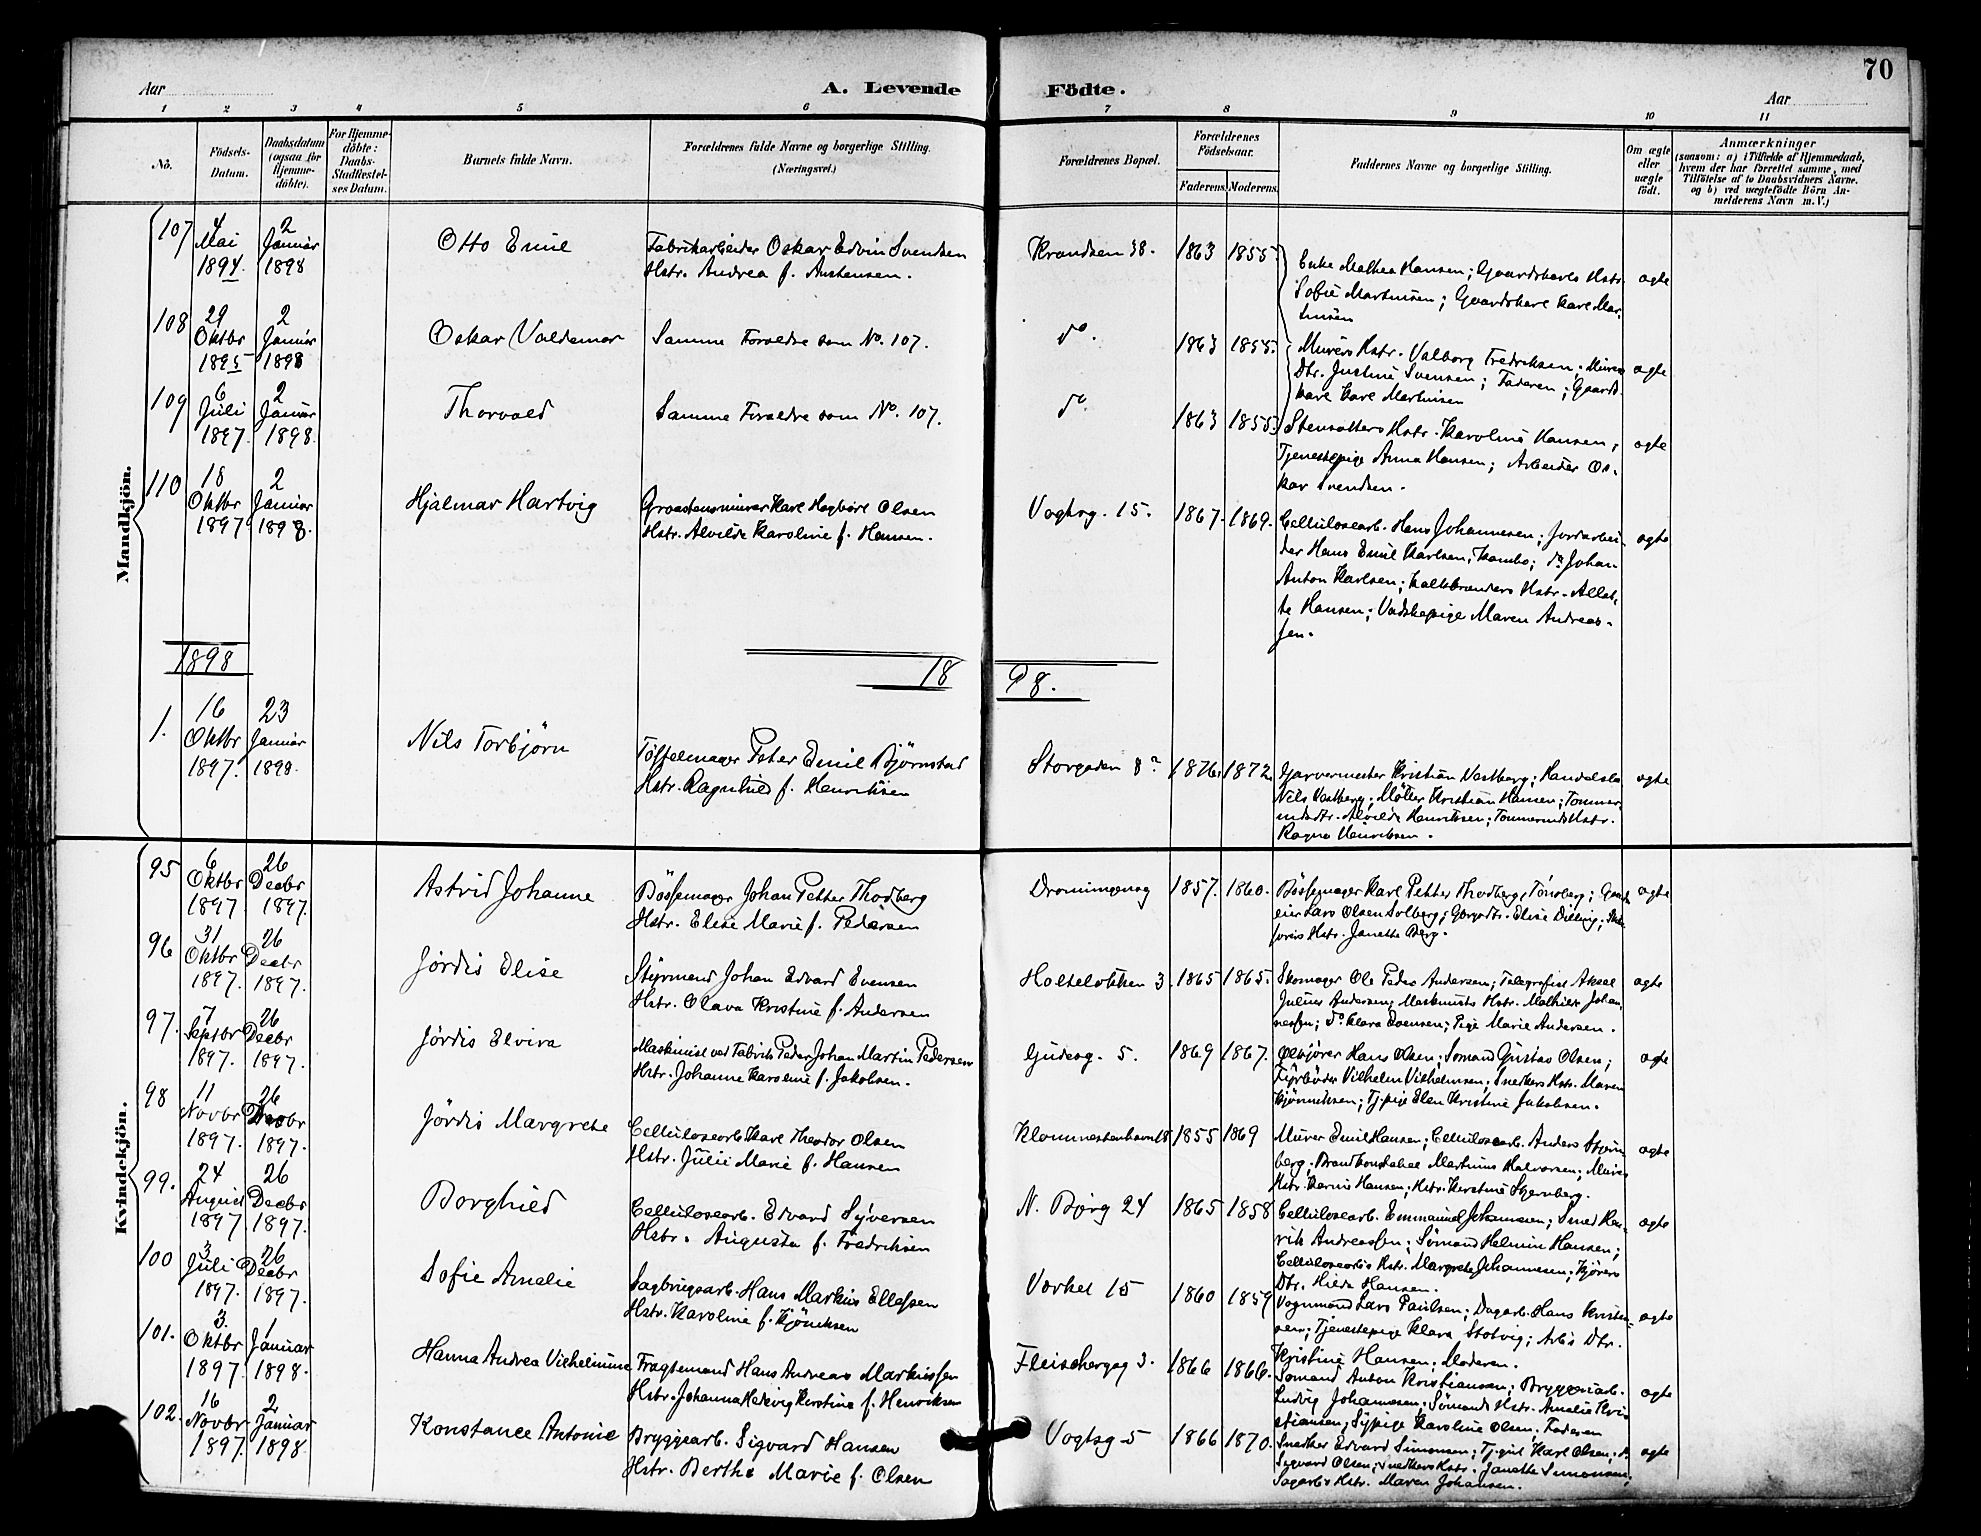 70
Aar
A. Levende Födte.
Aar
1 2 3 4 5 6 7 8 9 10 11
Nö.
Födsels-Datum.
Daabsdatum (ogsaa for Hjemme-döbte).
For Hjemme-döbte: Daabs-Stadfæstel-ses Datum.
Barnets fulde Navn.
Forældrenes fulde Navne og borgerlige Stilling.
(Næringsvei.)
Forældrenes Bopæl.
Forældrenes Födselsaar.
Faderens. Moderens.
Faddernes Navne og borgerlige Stilling.
Om ægte eller uægte födt.
Anmærkninger
(saasom: a) i Tilfælde af Hjemmedaab, hvem der har forrettet samme, med Tilföielse af to Daabsvidners Navne. og b) ved uægtefödte Börn An-melderens Navn m. V.)
Mandkjön.
107 4 Mai 1894. 2 Januar 1898 Otto Emil
Fabrikarbeider Oskar Edvin Svendsen
Hstr. Andrea f. Anstensen.
Krondsen 38. 1863 1855
Enke Mathea Hansen; Gaardskarls Hstr.
Sofie Martinsen; Gaardskarl Karl Mar-
tinsen
ægte
108 29 Oktbr 1895 2 Januar 1898 Oskar Valdemar
Samme Forældre som No. 107.
do. 1863 1855.
Murers Hstr. Valborg Fredriksen; Murer
Dtr. Justine Svensen; Faderen; Gaards-
karl Karl Martinsen
ægte
109 6 Juli 1897. 2 Januar 1898. Thorvald
Samme Forældre som No. 107.
do. 1863 1855.
Stensatters Hstr. Karoline Hansen;
Tjenestepige Anna Hansen; Arbeider Os-
kar Svendsen.
ægte
110 18 Oktbr 1897 2 Januar 1898. Hjalmar Hartvig
Graastensmurer Karl Hagbart Olsen
Hstr. Alvilde Karoline f. Hansen.
Vogtsg. 15. 1867. 1869.
Cellulosearb. Hans Johannesen; Jordarbei-
der Hans Emil Karlsen, Kambo; do. Johan
Anton Karlsen; Kalkbrænders Hstr. Allet-
te Hansen; Vadskepige Maren Andreas-
sen.
ægte
1898 18 98.
1. 16 Oktbr 1897. 23 Januar 1898. Nils Torbjörn
Töffelmager Peter Emil Björnstad
Hstr. Ragnhild f. Henriksen
Storgaden 8 1876. 1872.
Garvermester Kristian Vestberg; Handelsb.
Nils Vestberg; Möller Kristian Hansen; Tömmer-
mds dtr. Alvilde Henriksen; Tömmermds Hstr.
Ragna Henriksen.
ægte
Kvindekjön.
95 6 Oktbr 1897 26 Decbr 1897. Astrid Johanne
Bössemager Johan Petter Thodberg
Hstr. Elise Marie f. Pedersen
Dronningensg 1857. 1860.
Bössemager Karl Petter Thodberg, Tönsberg; Gaard-
eier Lars Olsen Solberg; Elise Dilling;
Hstr. Janette Berg.
ægte
96 31 Oktbr 1897. 26 Decbr 1897. Jördis Elise
Styrmand Johan Edvard Evensen
Hstr. Olava Kristine f. Andersen
Holteløkken 3. 1865 1865.
Skomager Ole Peder Andersen; Telegrafist Aksel
Julius Andersen; Maskinists Hstr. Mathilde Johan-
nessen; do. Klara Evensen; Pige Marie Andersen.
ægte
97. 7 Septbr 1897. 26 Decbr 1897. Jördis Elvira
Maskinist ved Fabrik Peder Johan Martin Pedersen
Hstr. Johanne Karoline f. Jakobsen.
Gudesg. 5. 1869 1867.
Hans Olsen; Sömand Gustav Olsen;
Fyrböder Vilhelm Vilhelmsen; Snedkers Hstr. Maren
Tj.pige Elen Kristine Jakobsen.
ægte
98 11 Novbr 1897. 26 Decbr 1897. Jördis Margrete
Cellulosearb. Karl Theodor Olsen
Hstr. Julie Marie f. Hansen
1855 1869
Murer Emil Hansen; Cellulosearb. Anders Stjern-
berg; Brandkonstabel Martinius Halvorsen; Murers
Hstr. Karine Hansen; Hstr. Kirstine Stjernberg.
ægte
99. 24 August 1897. 26 Decbr 1897. Borghild
Cellulosearb. Edvard Syversen
Hstr. Augusta f. Fredriksen
N. Bjerg 24 1865 1858
Cellulosearb. Emmanuel Johannesen; Smed Hen-
rik Andreassen; Sömand Helmin Hansen;
Cellulosearb's Hstr. Margrete Johannesen; Kjörers
Dtr. Hilda Hansen.
ægte
100 3 Juli 1897. 26 Decbr 1897. Sofie Amalie
Sagbrugsarb. Hans Markus Ellefsen
Hstr. Karoline f. Kjöniksen
Værket 15 1860 1859
Vognmand Lars Paulsen; Dagarb. Hans Kristen-
sen; Tjenestepige Klara Stolvig; Arb's Dtr.
Kristine Hansen; Moderen.
ægte
101. 3. Oktbr 1897 1 Januar 1898. Hanna Andrea Vilhelmine
Fragtemand Hans Andreas Markussen
Hstr. Johanna Hedevig Kirstine f. Henriksen
Fleischersg 3. 1866 1866.
Sömand Anton Kristiansen; Bryggeriarb.
Ludvig Johannesen; Sömands Hstr. Amalie Kris-
tiansen; Sypige Karoline Olsen; Faderen
ægte
102. 16 Novbr 1897. 2 Januar 1898. Konstance Antonie
Bryggearb. Sigvard Hansen
Hstr. Berthe Marie f. Olsen
Vogtsg 5 1866 1870.
Snedker Edvard Simonsen; Tj.gut Karl Olsen; do.
Sigvard Olsen; Snedkers Hstr. Janette Simonsen;
Sagarb's Hstr. Maren Johansen.
ægte